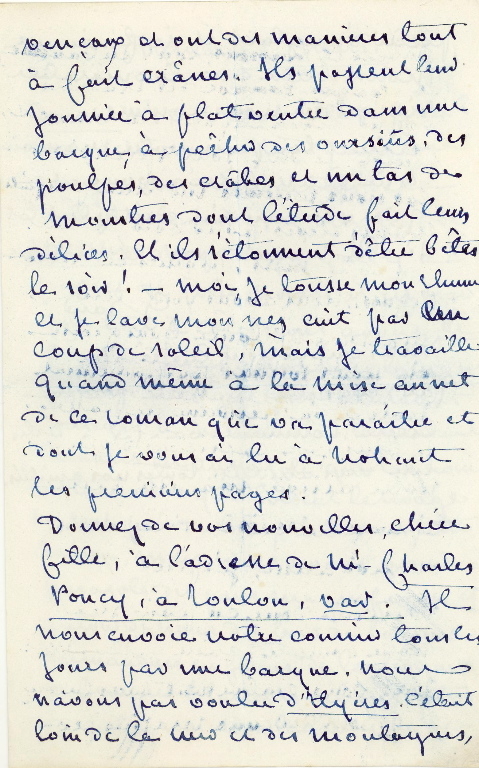 vençaux et ont des manières tout
à fait crânes. Ils passent leur
journée à plat ventre dans une
barque, à pêcher des oursins, des
poulpes, des crâbes et un tas de
monstres dont l'étude fait leurs
délices. Et ils s'étonnent d'être bêtes
le soir ! — moi, je tousse mon rhume
et je lave mon nez cuit par un
coup de soleil, mais je travaille
quand même à la mise au net
de ce roman qui va paraître et
dont je vous ai lu à Nohant
les premières pages.
Donnez de vos nouvelles, chère
fille, à l'adresse de Mr Charles
Poncy, à Toulon, var. Il
nous envoie notre courrier tous les
jours par une barque. nous
n'avons pas voulu d'Hyères. c'était
loin de la mer et des montagnes,